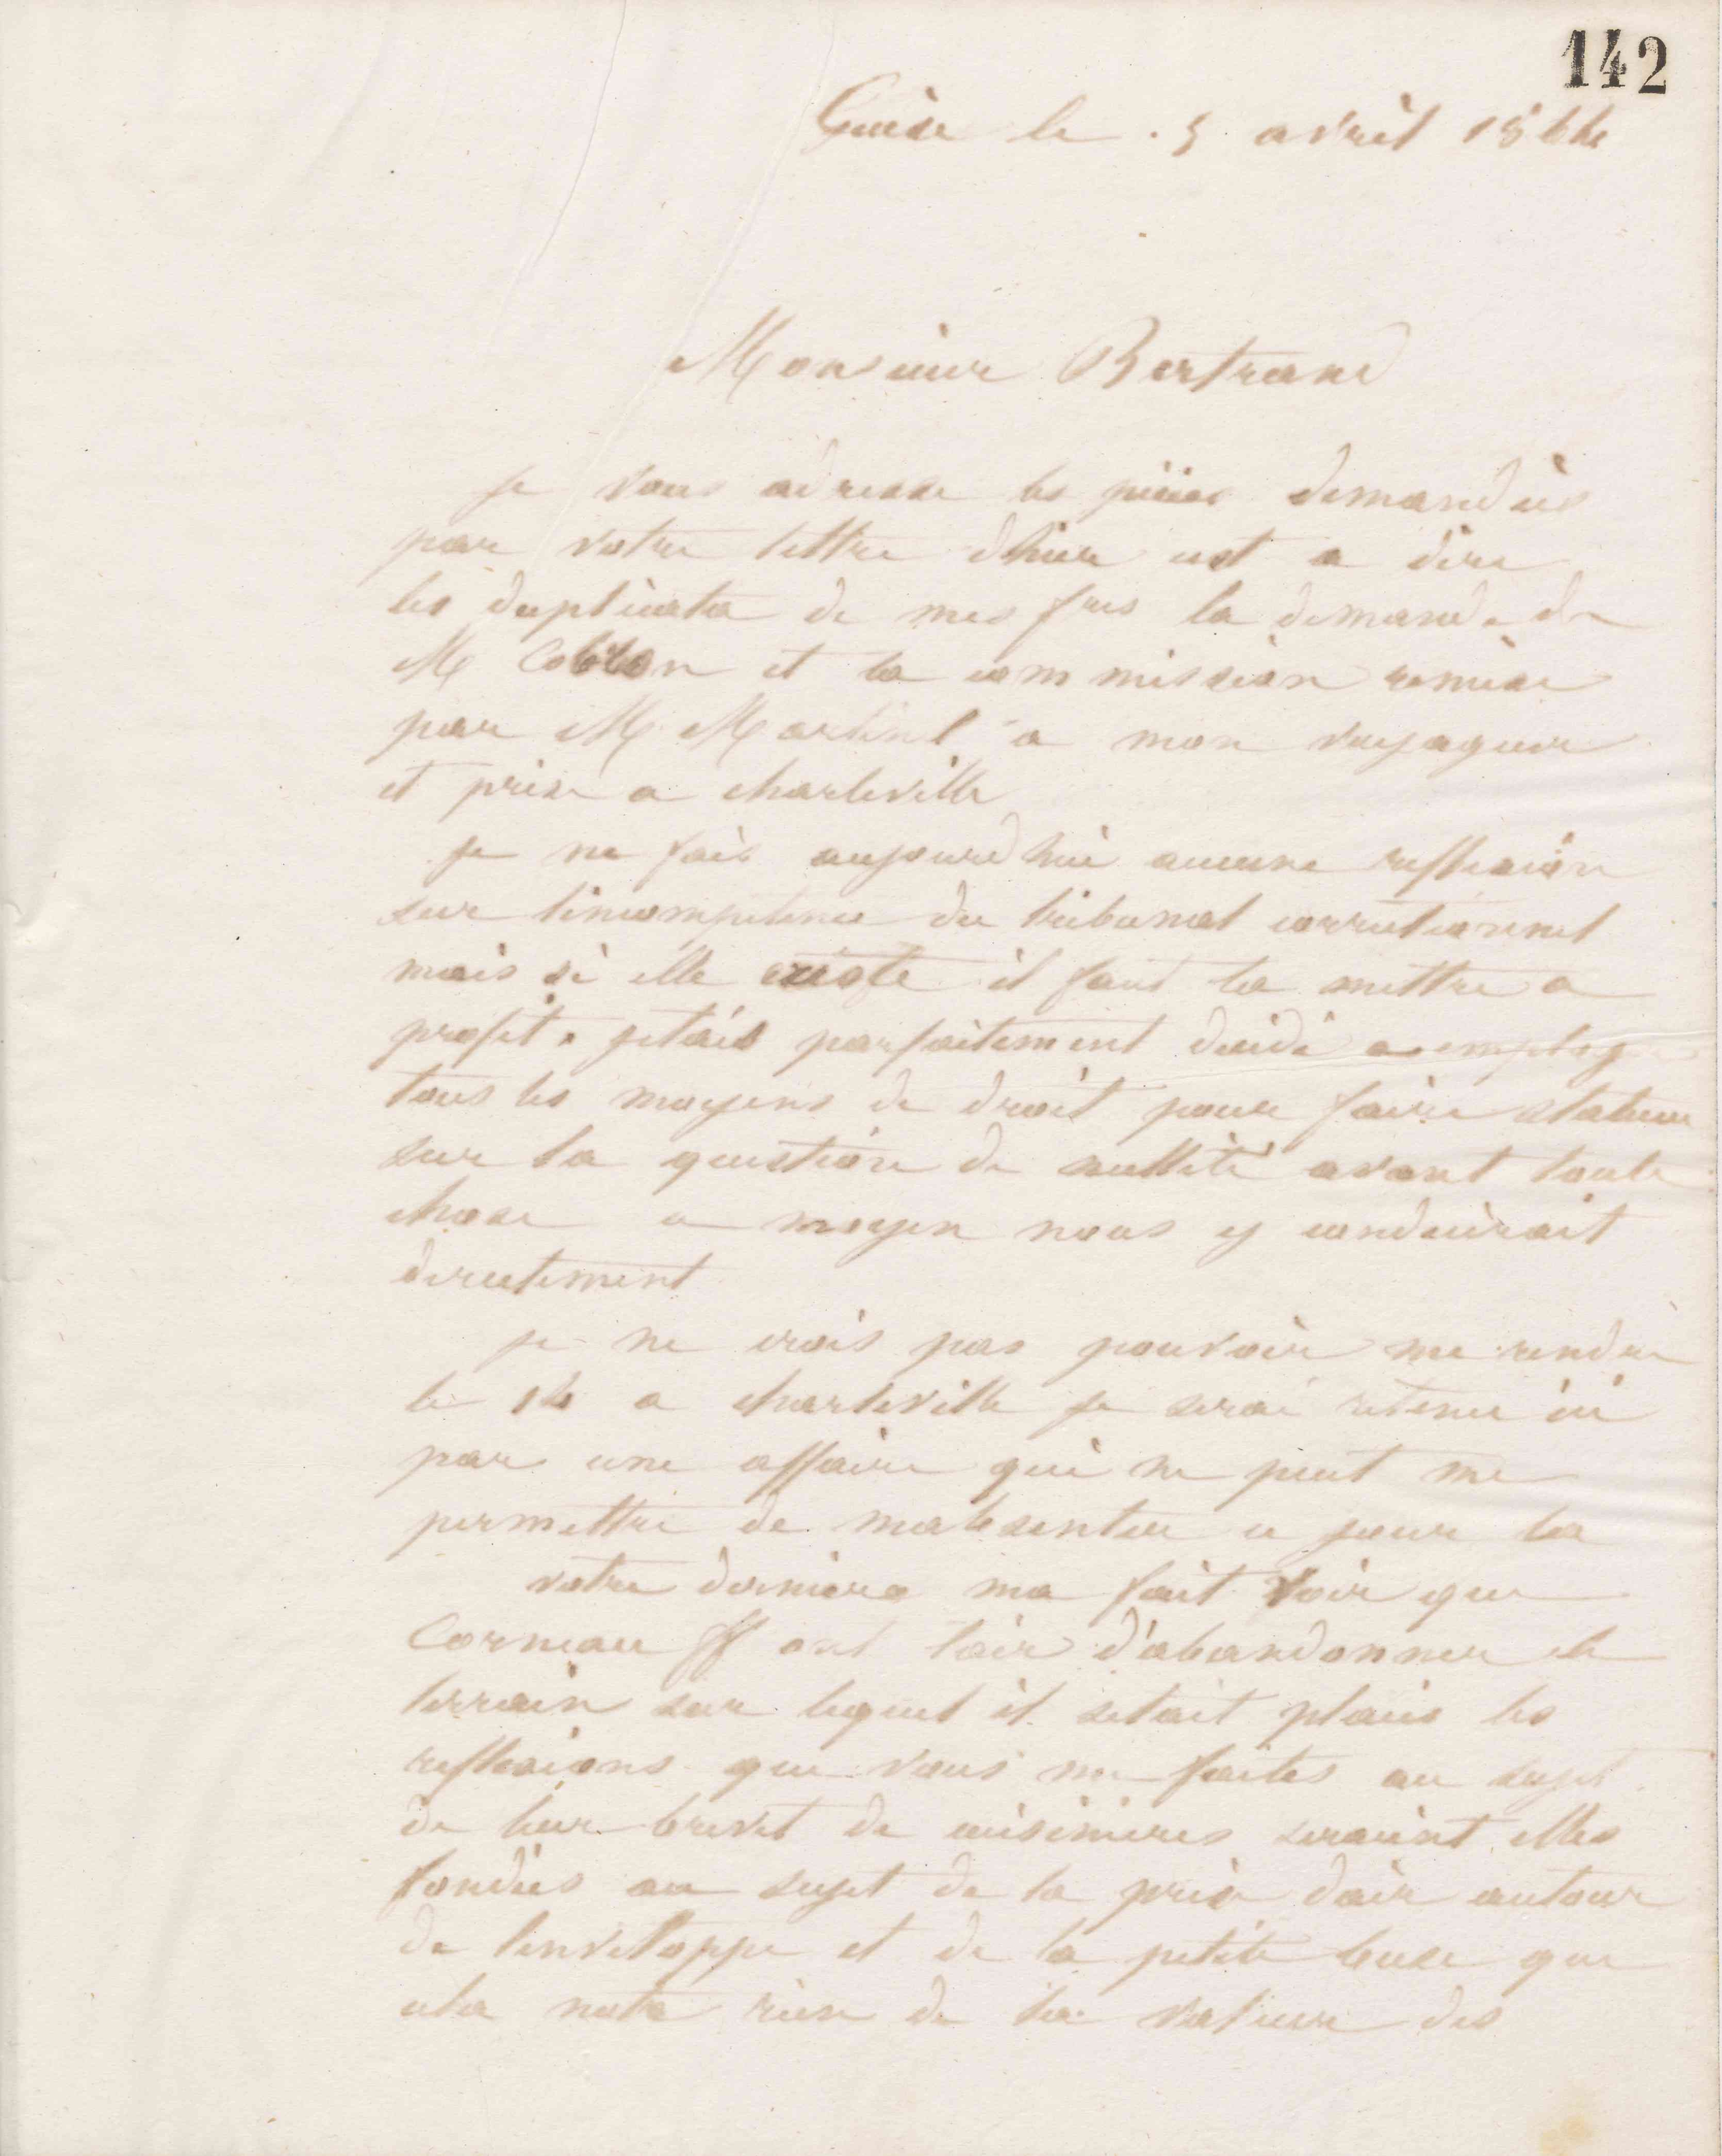 142
Guise le 5 avril 1864
Monsieur Bertrand
je vous adresse les pièces demandées
par votre lettre dhier cest a dire
les duplicata de mes fres la demande de
M et la commission remise
par M Martinel a mon voyageur
et prise a charleville
je ne fais aujourdhui aucune reflexion
sur lincompetence du tribunal correctionnel
mais si elle existe il faut la mettre a
profit. jetais parfaitement decidé a employer
tous les moyens de droit pour faire statuer
sur la question de nullité avant toute
chose ce moyen nous y conduirait
directement
je ne crois pas pouvoir me rendre
le 14 a charleville je serai retenu ici
par une affaire qui ne peut me
permettre de mabsenter ce jour la
votre derniere ma fait voir que
Corneau ff ont lair d'abandonner le
terrain sur lequel il setait placés les
reflexions que vous me faites au sujet
de leur brevet de cuisinieres seraient elles
fondées au sujet de la prise dair autour
de lenveloppe et de la petite buse que
cela note rien de la valeur des